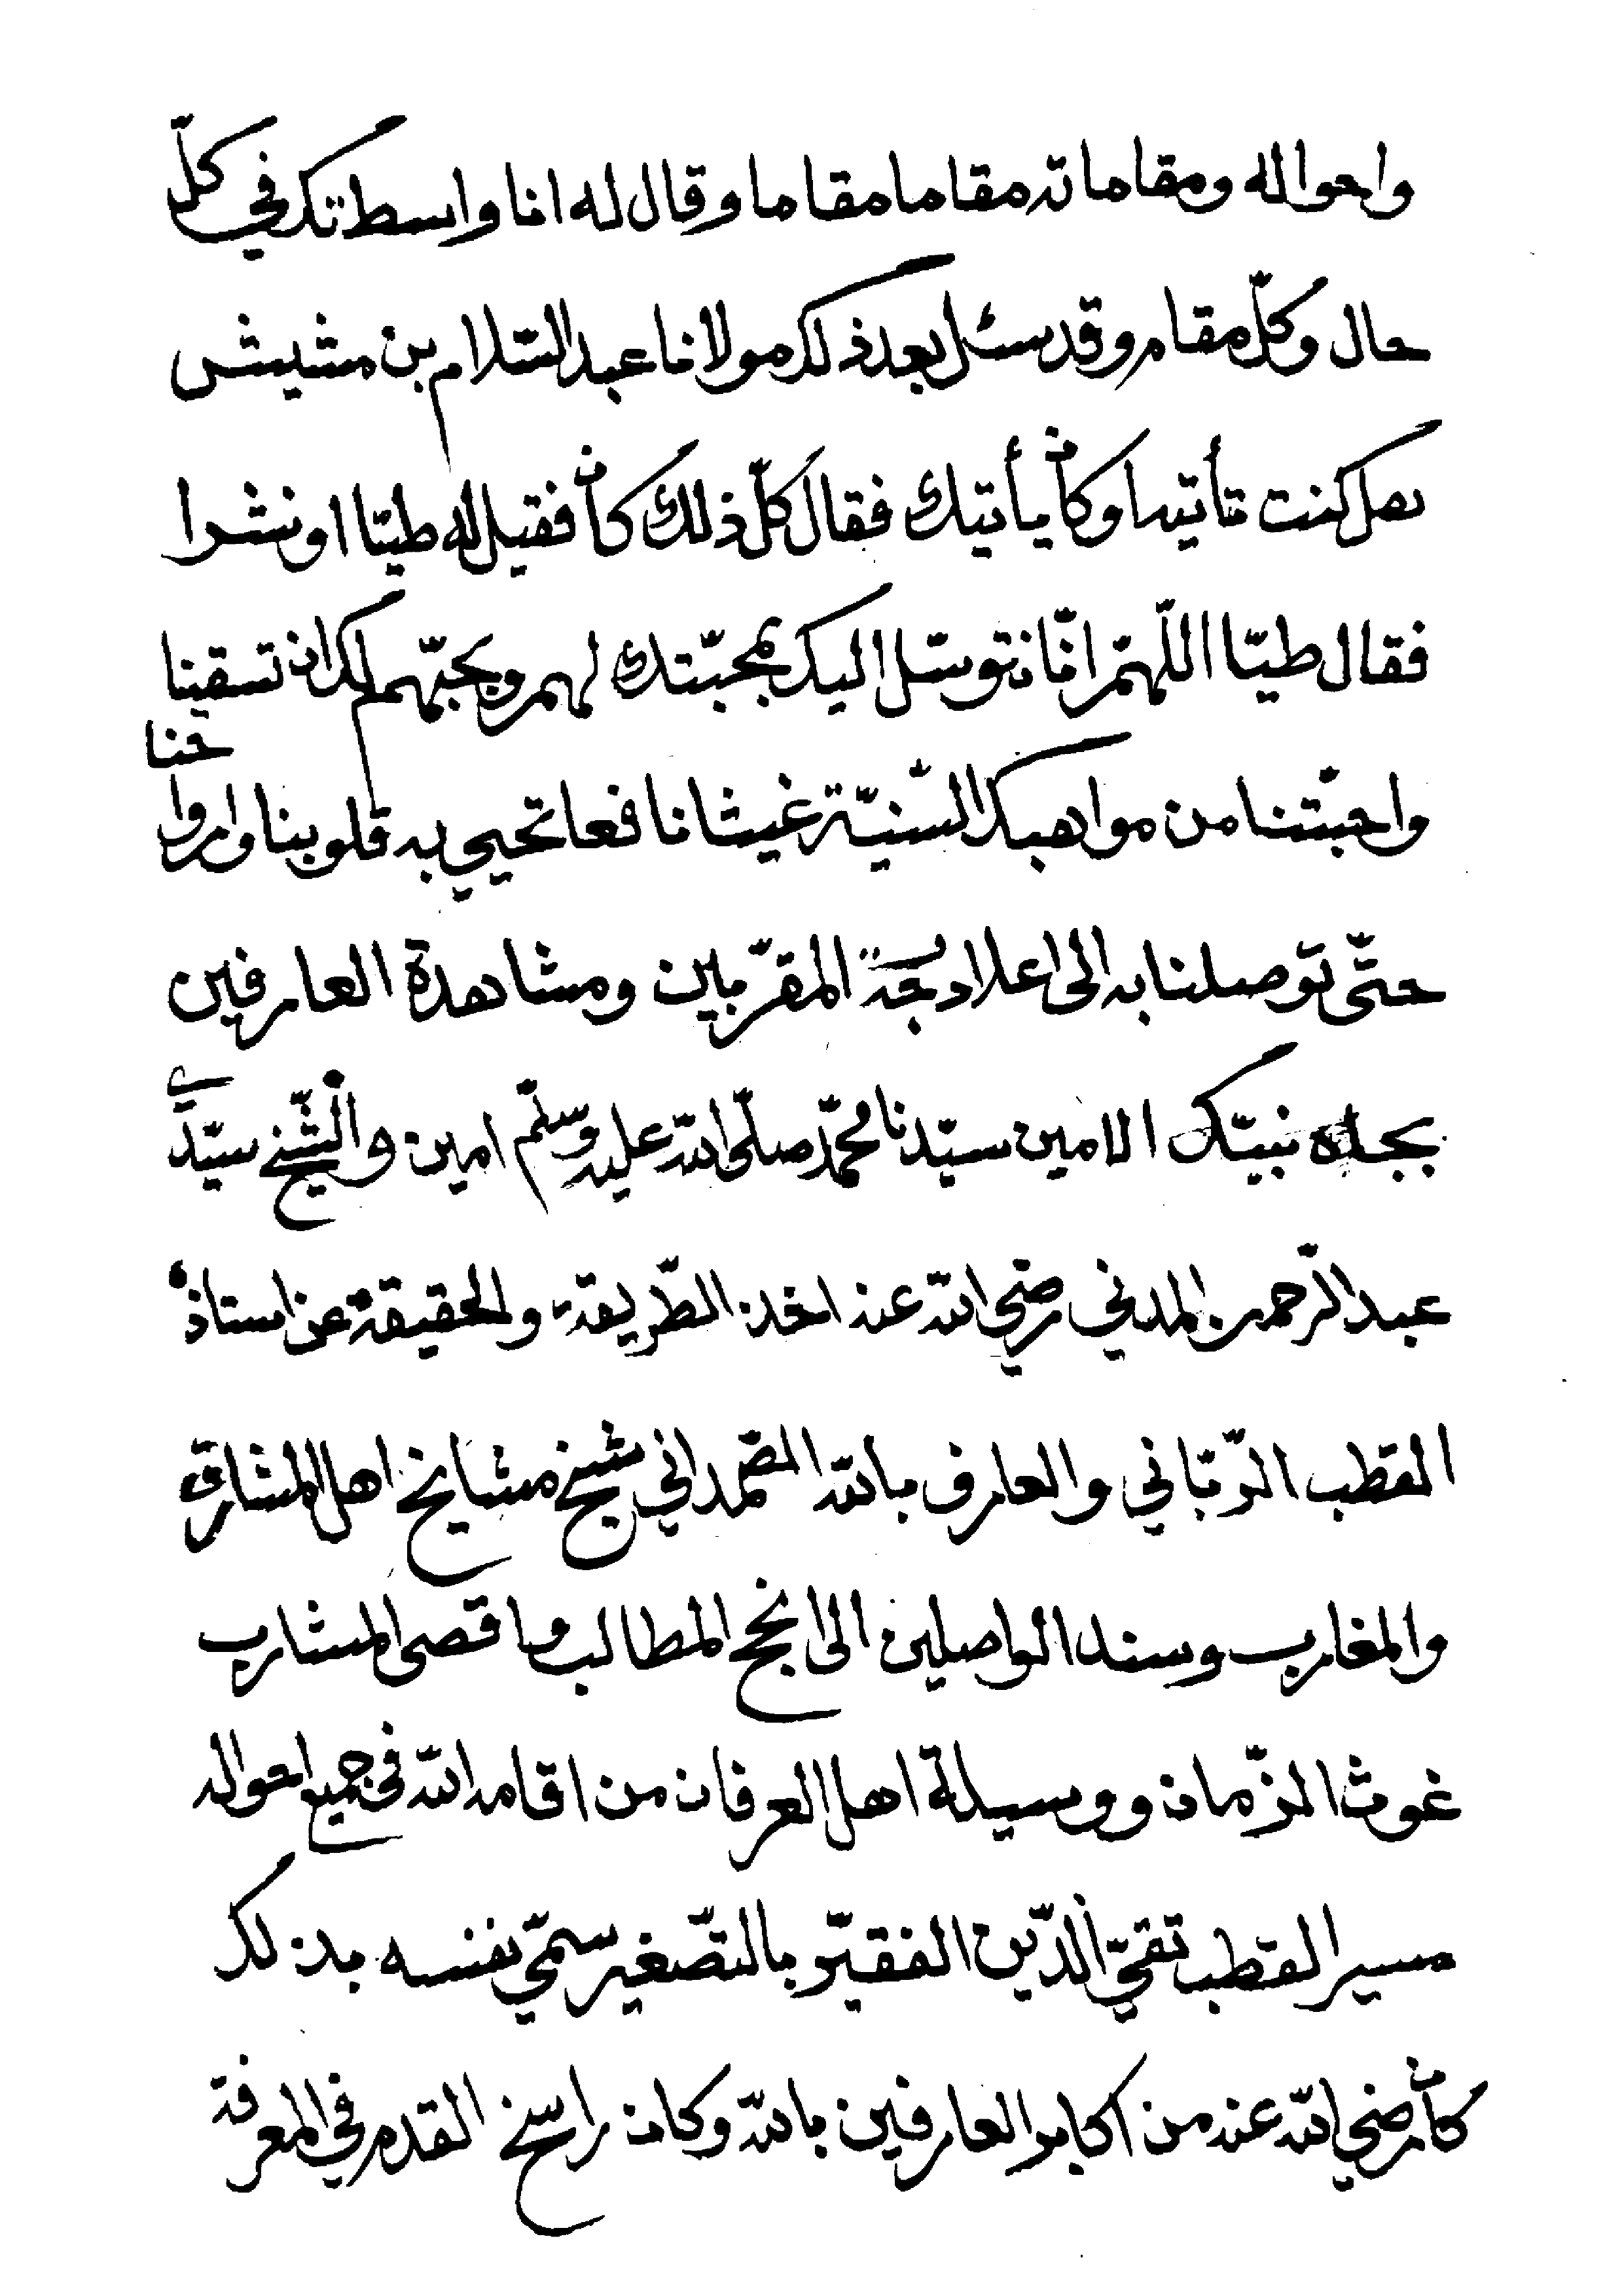 واحواله ومقاماته مقاما مقاما وقال له انا واسطتك في كلّ
حال وكلّ مقام وقد سئل بعد ذلك مولانا عبد السّلام بن مشيش
هل كنت تأتيه او كان يأتيك فقال كلّ ذلك كان فقيل له طيّا او نشرا
فقال طيّا اللّهمّ انّا نتوسّل اليك بمحبّتك لهم وبحبّهم لك ان تسقينا
واحبّتنا من مواهبك السّنيّة غيثا نافعا تحيي به قلوبنا وارواحنا
حتّى توصلنا به الى اعلا درجة المقرّبين ومشاهدة العارفين
بجاه نبيّك الامين سيّدنا محمّد صلّى اللّه عليه وسلّم امين والشّيخ سيّدي
عبد الرّحمن المدني رضي اللّه عنه اخذ الطّريقة والحقيقة عن استاذه
القطب الرّبّاني والعارف باللّه الصّمداني شيخ مشايخ اهل المشارق
والمغارب وسند الواصلين الى انجح المطالب واقصى المشارب
غوث الزّمان ووسيلة اهل العرفان من اقامه اللّه في جميع احواله
مسير القطب تقيّ الدّين الفقيّر بالتّصغير سمّي نفسه بذلك
كان رضي اللّه عنه من اكابر العارفين باللّه وكان راسخ القدم في المعرفة